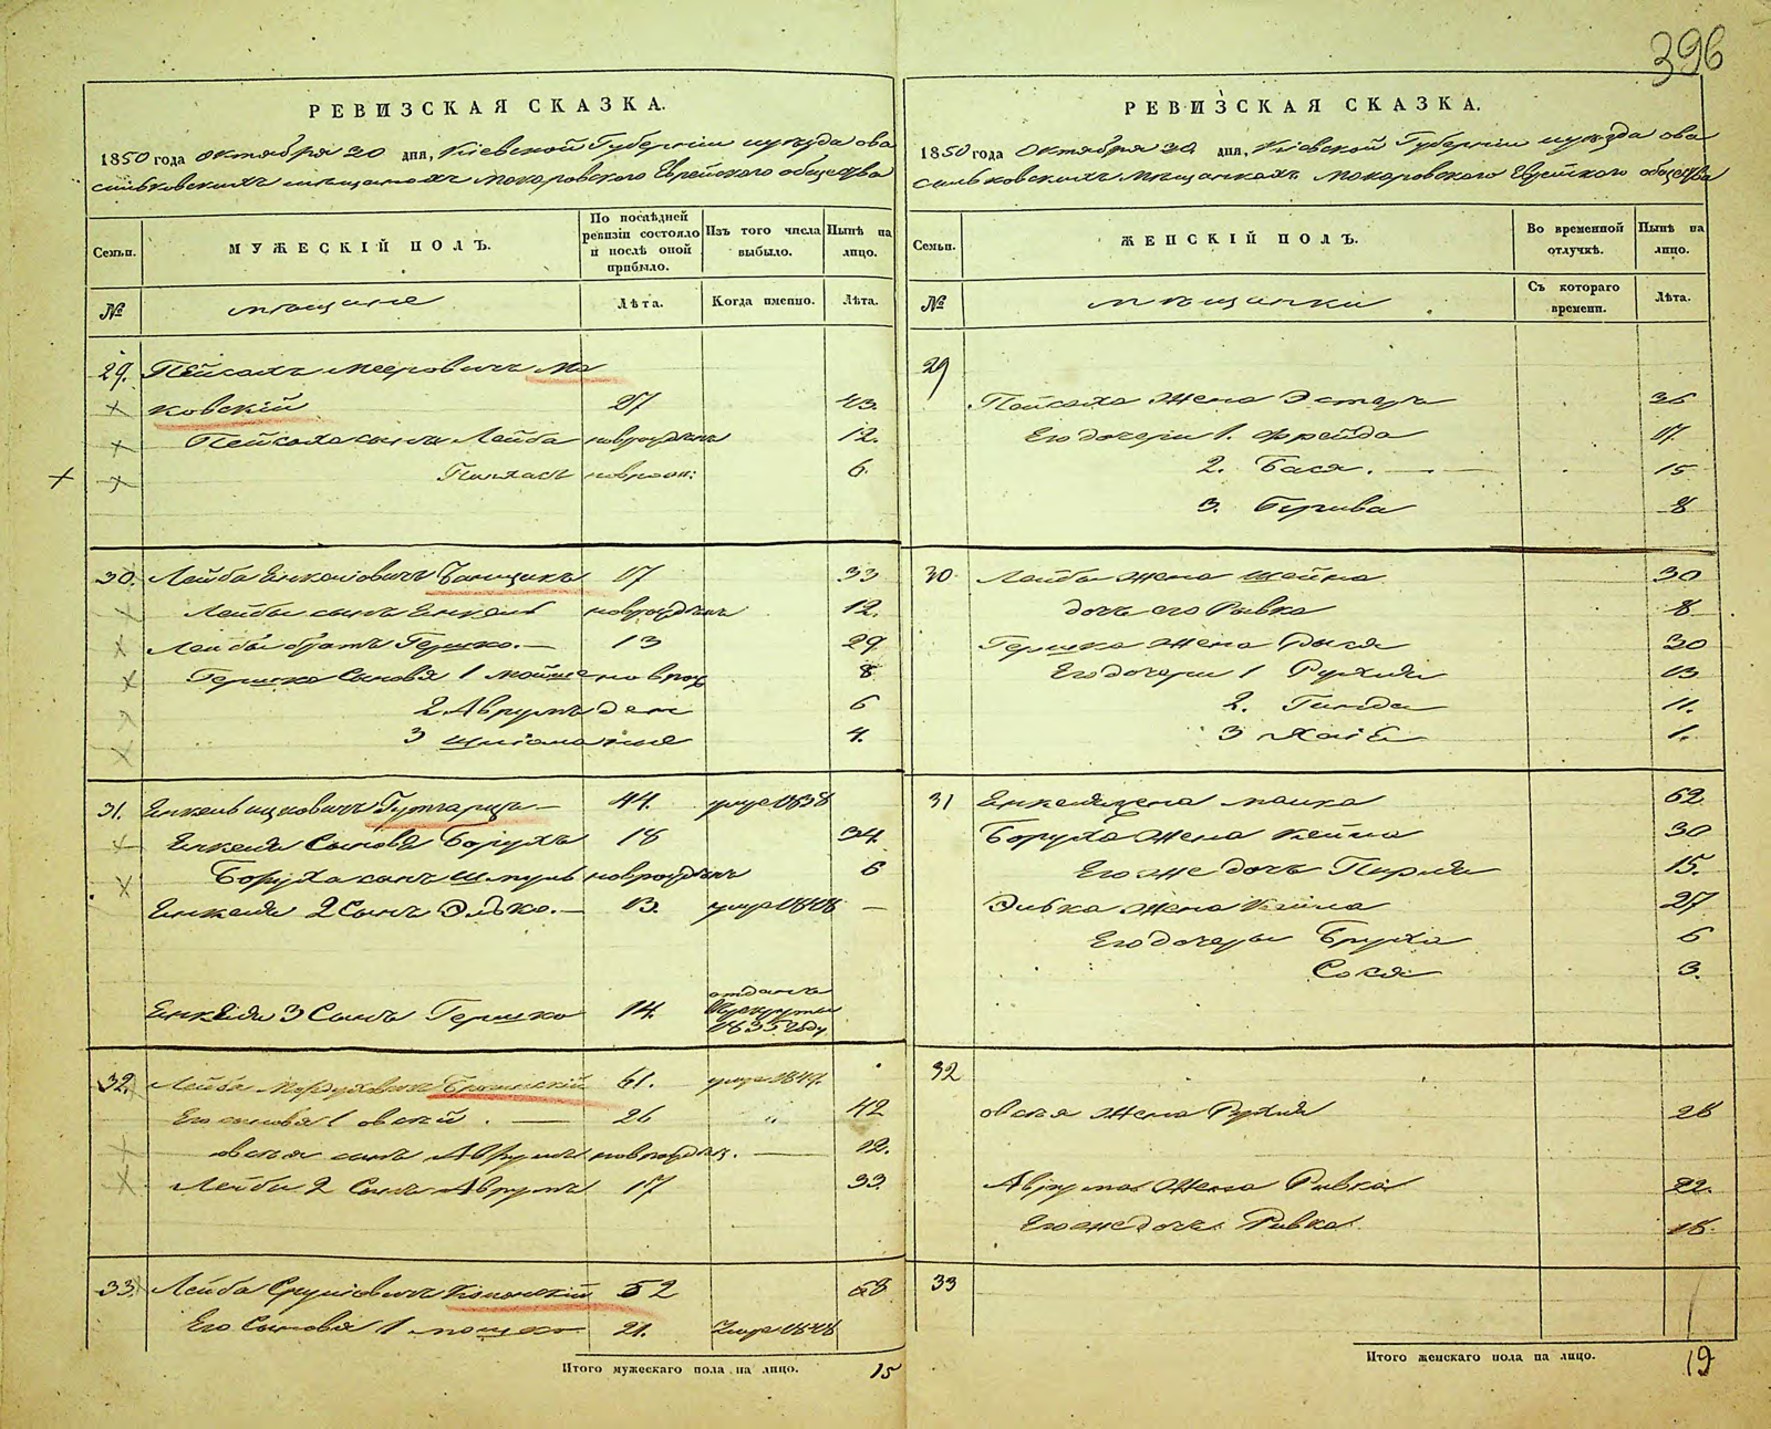 396
РЕВИЗСКАЯ СКАЗКА.
1850 года Октября 20 дня, Кіевской Губерніи и уѣзда о ва
сильковскихъ мѣщанахъ Макаровского Еврейского общества
Семьи.
МУЖЕСКІЙ ПОЛЪ.
По послѣдней ревизіи состояло и послѣ оной прибыло.
Изъ того числа выбыло.
Нынѣ на лицо.
№
мѣщане
Лѣта.
Когда именно.
Лѣта.
29. Пейсахъ Мееровичъ Ма
ковскій 27 43.
Пейсаха сынъ Лейба новрожденъ 12.
Пинхасъ новрож: 6.
30. Лейба Енкелiовичъ Банщикъ 17 33
Лейбы сынъ Енкель новрожденъ 12.
Лейбы братъ Гершко. 13 29
Гершка Сыновя 1 Мойше новрож 8
2 Аврумъ ден 6
3 Шліома ные 4.
31. Енкель Ицковичъ Гутгарцъ 44. умре 1838
Енкеля Сыновя Борухъ 18 34.
Боруха сынъ Шмуль новрожденъ 6
Енкеля 2 Сынъ Элько. 13. умре 1848 —
Енкеля 3 Сынъ Гершко 14. отданъ
Врекруты
1835 году
32. Лейба Мордуховичъ 61. умре 1847.
Его сыновя 1 Овсій. 26 " 42
Овсія сынъ Аврумъ новрожден. 12.
Лейбы 2 Сынъ Аврумъ 17 33
33. Лейба Сруліовичъ 52 68
Его Сыновя 1 Мошко 21. Умре 1848
Итого мужескаго пола на лицо. 15
РЕВИЗСКАЯ СКАЗКА.
1850 года Октября 20 дня, Кіевской Губерніи и уѣзда о ва
сильковскихъ мѣщанкахъ Макаровского Еврейского общества
Семьи.
ЖЕНСКІЙ ПОЛЪ.
Во временной отлучкѣ.
Нынѣ на лицо.
№
мѣщанки
Съ котораго времени.
Лѣта.
29
Пейсаха Жена Эстеръ 36
Его дочери 1. Фрейда 17.
2. Бася. 15
3. 8
30 Лейбы жена Шейна 30
дочь его Ривка 8
Гершка Жена Рыся 30
Его дочери 1 Рухля 13
2. Гинда 11.
3 Хаіе 1.
31 Енкеля жена Малка 62
Боруха Жена Кейла 30
Его же дочь Перля 15.
Элька Жена 27
Его дочеры Бруха 6
Сося 3.
32
Овсія Жена Рухля 28
Аврума Жена Ривка 22.
Его же дочь Ривка 18.
33
Итого женскаго пола на лицо. 19